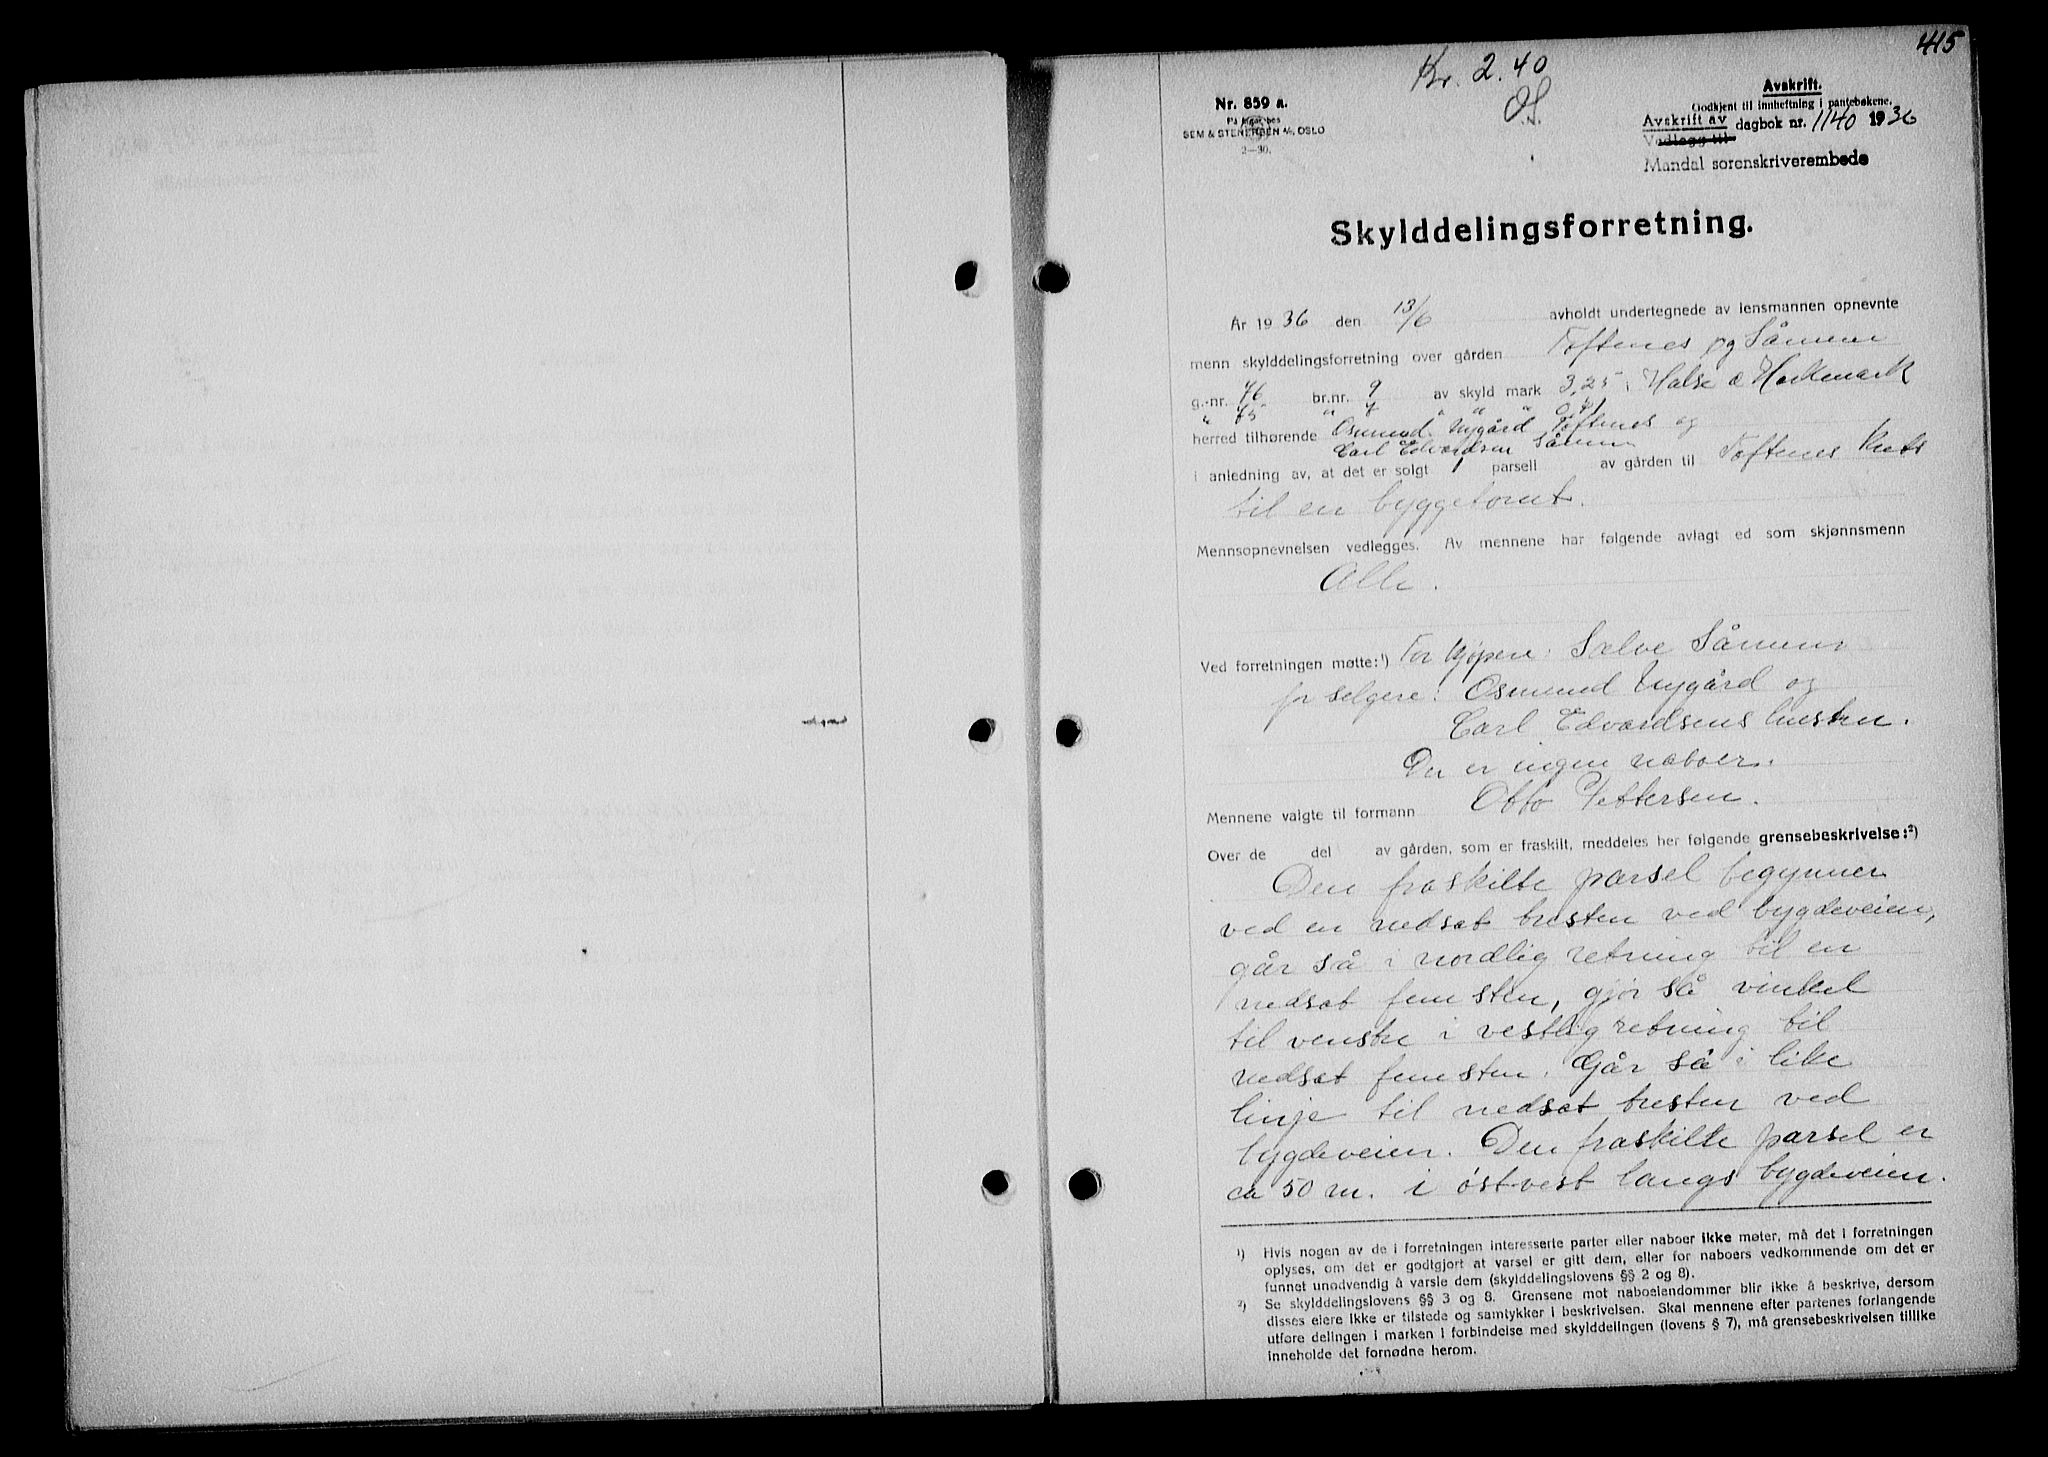 415
Kr. 2.40
O.S.
Nr. 859 a.
SEM & STENERSEN A/S, OSLO
2—30.
Avskrift.
Godkjent til innheftning i pantebøkene.
Avskrift av
Vedlegg til
dagbok nr. 1140 1936
Mandal sorenskriverembede
Skylddelingsforretning.
År 1936 den 13/6 avholdt undertegnede av lensmannen opnevnte
menn skylddelingsforretning over gården Toftenes og Sånum
g.-nr. 76 br.nr. 9 av skyld mark 3,25 i Halse & Harkmark
" 75 " 7 " " "
herred tilhørende Osmund Nygård Toftenes og
Carl Edvardsen Sånum
i anledning av, at det er solgt 1 parsell av gården til Toftenes
til en byggetomt.
Mennsopnevnelsen vedlegges. Av mennene har følgende avlagt ed som skjønnsmenn
Alle.
Ved forretningen møtte:¹) For kjøpere: Salve Sånum
for selgere: Osmund Nygård og
Carl Edvardsens
Der er ingen naboer.
Mennene valgte til formann Otto Pettersen.
Over de del av gården, som er fraskilt, meddeles her følgende grensebeskrivelse:²)
Den fraskilte parsel begynner
ved en nedsat ved bygdeveien,
går så i nordlig retning til en
nedsat sten, gjør så vinkel
til venstre i vestlig retning til
nedsat sten. Går så i like
linje til nedsat ved
bygdeveien. Den fraskilte parsel er
ca 50 m. i øst-vest langs bygdeveien.
¹) Hvis nogen av de i forretningen interesserte parter eller naboer ikke møter, må det i forretningen
oplyses, om det er godtgjort at varsel er gitt dem, eller for naboers vedkommende om det er
funnet unødvendig å varsle dem (skylddelingslovens §§ 2 og 8).
²) Se skylddelingslovens §§ 3 og 8. Grensene mot naboeiendommer blir ikke å beskrive, dersom
disses eiere ikke er tilstede og samtykker i beskrivelsen. Skal mennene efter partenes forlangende
utføre delingen i marken i forbindelse med skylddelingen (lovens § 7), må grensebeskrivelsen tillike
inneholde det fornødne herom.